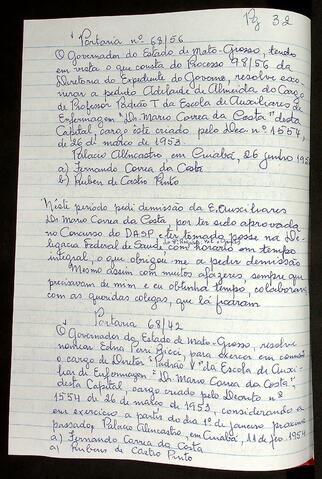 Pg 32
Portaria nº 68/56
O Governador do Estado de Mato-Grosso, tendo
em vista o que consta do Processo 98/56 da
Diretoria do Expediente do Governo, resolve exo-
nerar a pedido Adelaide de Almeida do Cargo
de Professor Padrão T da Escola de Auxiliares de
Enfermagem "Dr. Mario Correa da Costa" desta
Capital, cargo este criado pelo Dec. nº 1554,
de 26 di março de 1953.
Palacio Alencastro, em Cuiabá, 26 junho 195
a) Fernando Correa da Costa
b) Rubens de Castro Pinto
Neste período pedi demissão da E. Auxiliares
Dr Mario Correa da Costa, por ter sido aprovada
no Concurso do DASP, e ter tomado posse na De-
legacia Federal de Saude com horario em tempo
integral, o que obrigou me a pedir demissão
Mesmo assim com muitos afazeres, sempre que
precisavam de mim e eu obtinha tempo, colaborava
com as queridas colegas, que lá ficaram
Portaria 68/42
O Governador do Estado de Mato-Grosso, resolve
nomear Edna Perri Ricci, para exercer em comis
o cargo de Diretor "Padrão V" da Escola de Auxi-
liar de Enfermagem "Dr Mario Correa da Costa",
desta Capital, cargo criado pelo Decreto nº
1554 de 26 de março de 1953, considerando a
em exercicio a partir do dia 1º de janeiro proximo
passado, Palacio Alencastro, em Cuiabá, 11 de fev. 1954
a) Fernando Correa da Costa
a) Rubens de Castro Pinto